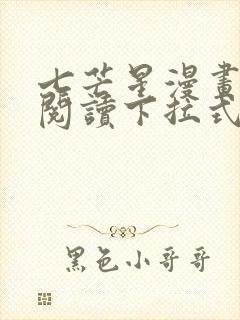 七芒星漫畫
閱讀下拉式
黑色小哥哥